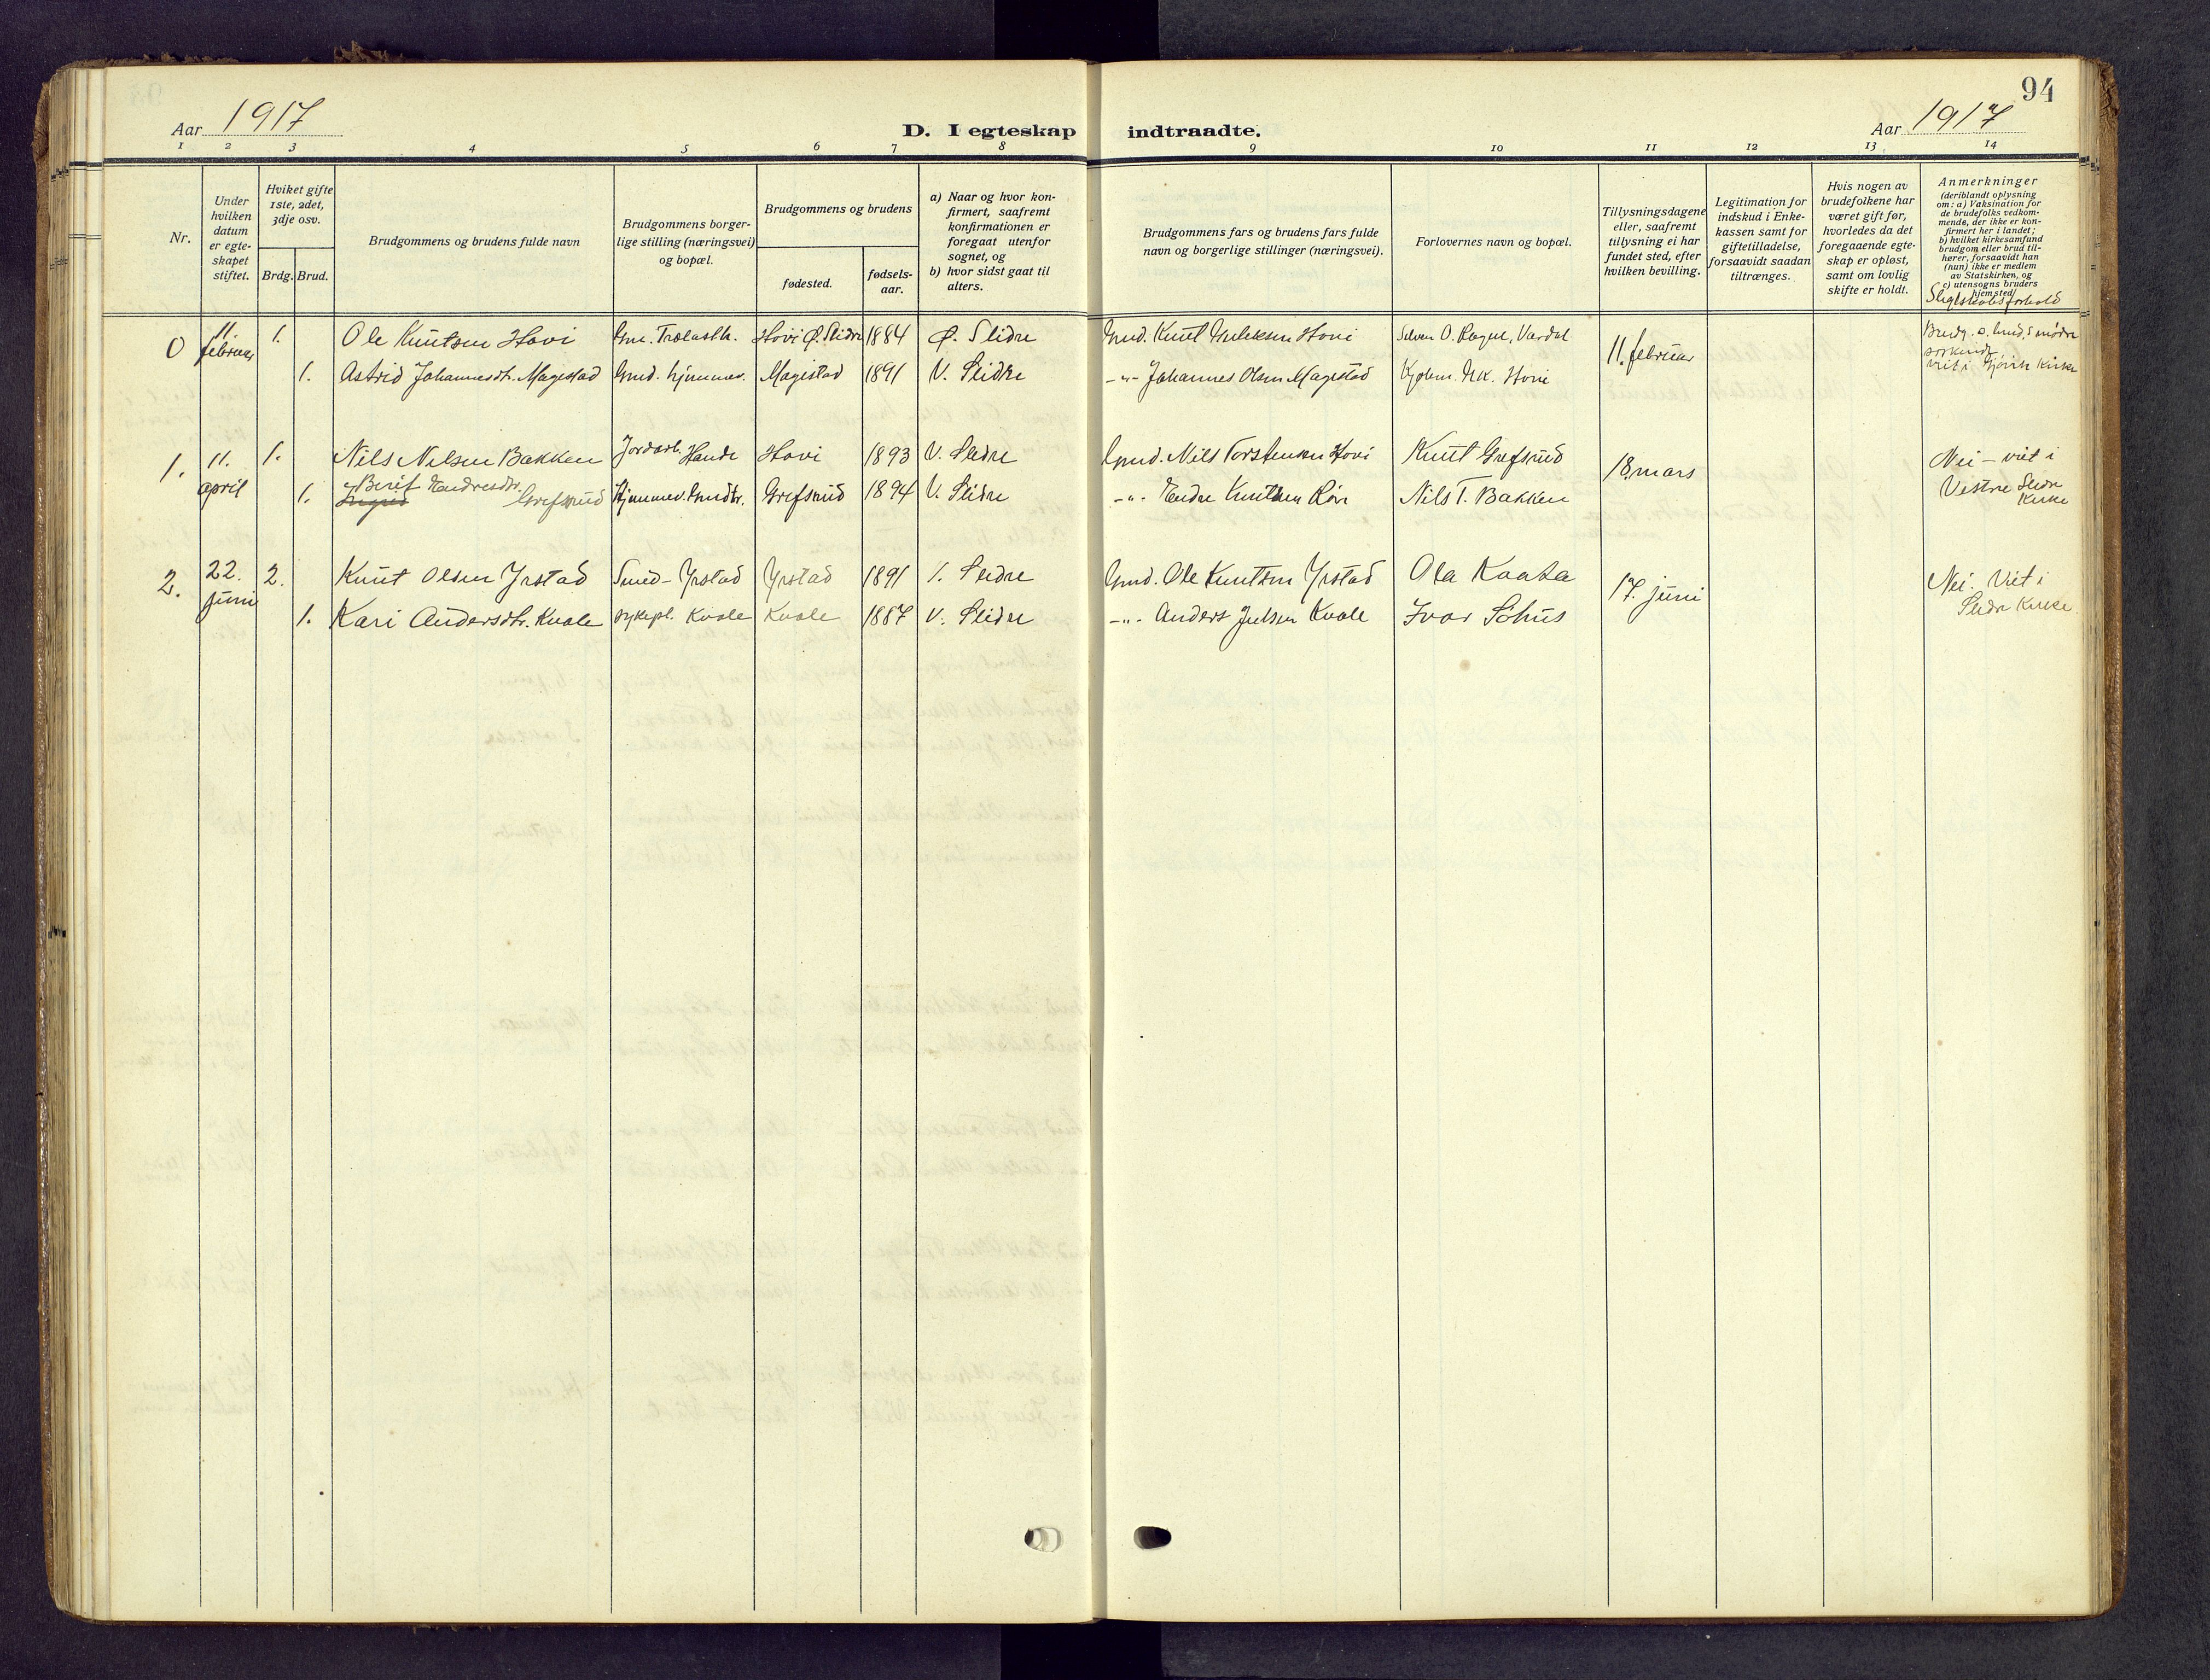 94
Aar 1917
D. I egteskap indtraadte.
Aar 1917
1 2 3 4 5 6 7 8 9 10 11 12 13 14
Nr.
Under hvilken datum er egteskapet stiftet.
Hviket gifte 1ste, 2det, 3dje osv.
Brdg. Brud.
Brudgommens og brudens fulde navn
Brudgommens borgerlige stilling (næringsvei) og bopæl.
Brudgommens og brudens
fødested.
fødselsaar.
a) Naar og hvor konfirmert, saafremt konfirmationen er foregaat utenfor sognet, og
b) hvor sidst gaat til alters.
Brudgommens fars og brudens fars fulde navn og borgerlige stillinger (næringsvei).
Forlovernes navn og bopæl.
Tillysningsdagene eller, saafremt tillysning ei har fundet sted, efter hvilken bevilling.
Legitimation for indskud i Enkekassen samt for giftetilladelse, forsaavidt saadan tiltrænges.
Hvis nogen av brudefolkene har været gift før, hvorledes da det foregaaende egteskap er opløst, samt om lovlig skifte er holdt.
Anmerkninger
(deriblandt oplysning om: a) Vaksination for de brudefolks vedkommende, der ikke er konfirmert her i landet; b) hvilket kirkesamfund brudgom eller brud tilhører, forsaavidt han (hun) ikke er medlem av Statskirken, og c) utensogns bruders hjemsted)
Slegtskabsforhold
0 11. februar 1. Ole Knutsen Hovi Hovi Ø. Slidre 1884 Ø. Slidre Gmd. Knut Hovi Vardal 11. februar Brudg. o. bruds mødre
1. Astrid Johannesdtr. Magistad Gmd. hjemmev. Magistad 1891 V. Slidre -"- Johannes Olsen Magistad Hovi viet i Gjøvik Kirke
1. 11. april 1. Nils Nilsen Bakken Jordarb. Hande Hovi 1893 V. Slidre Gmd. Nils Torstensen Hovi Knut Grefsrud 18. mars Nei – viet i
1. Ingrid Berit Endresdtr. Grefsrud Hjemmev. Gmdtr. Grefsrud 1894 V. Slidre -"- Endre Knutsen Nils T. Bakken Vestre Slidre Kirke
2. 22. juni 2. Knut Olsen Yrstad Smed – Yrstad Yrstad 1891 V. Slidre Gmd. Ole Knutsen Yrstad Ola Kaata 17. juni Nei. Viet i
1. Kari Andersdtr. Kvale sykepl. Kvale Kvale 1887 V. Slidre -"- Anders Julsen Kvale Ivar Slidre Kirke